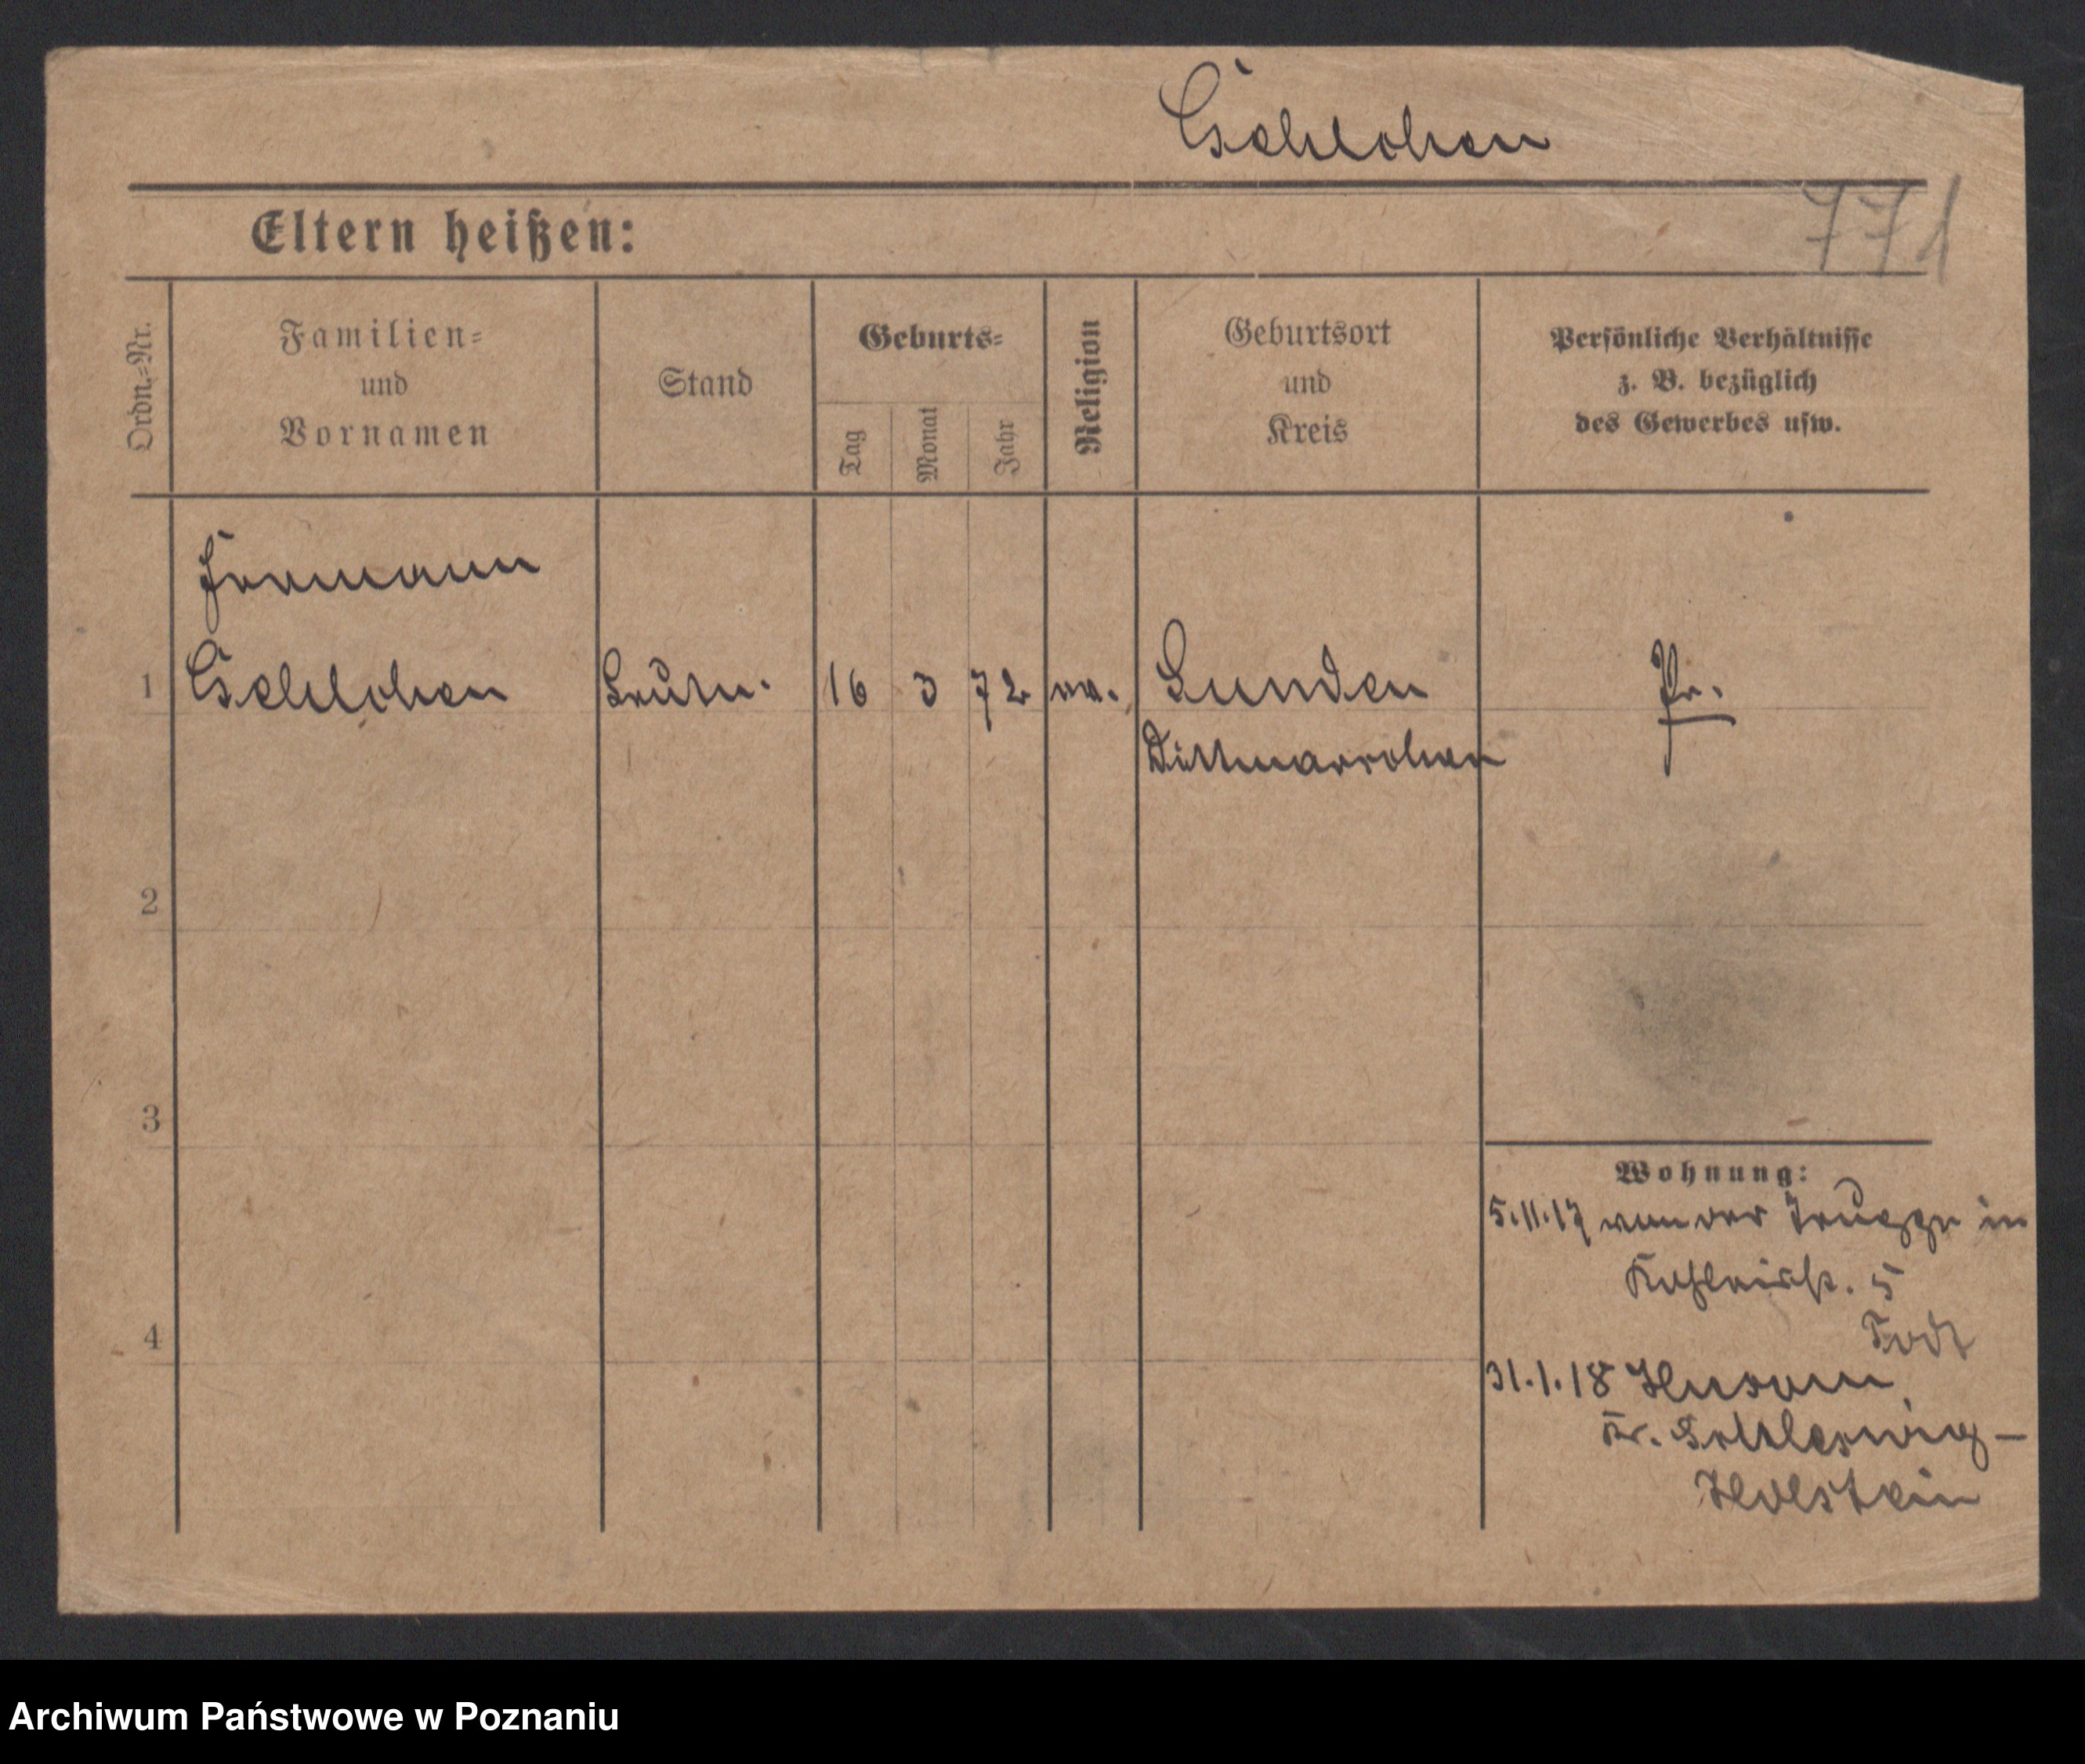 771
Eltern heißen:
Ordn.-Nr.
Familien-
und
Vornamen
Stand
Geburts-
Tag
Monat
Jahr
Religion
Geburtsort
und
Kreis
Persönliche Verhältnisse
z. B. bezüglich
des Gewerbes usw.
1
16
3
72
Lunden
Pr.
2
3
4
Wohnung:
5.11.17 von der Truppe in
5
31.1.18 Husum
Kr. Schleswig-
Holstein
Archiwum Państwowe w Poznaniu